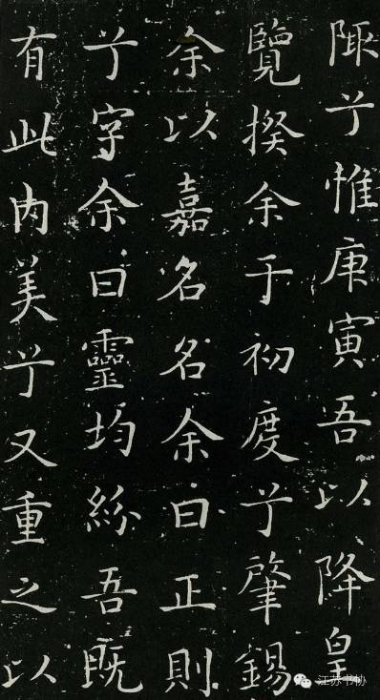 陬兮惟庚寅吾以降皇
覽揆余于初度兮肇錫
余以嘉名名余曰正則
兮字余曰靈均紛吾既
有此内美兮又重之以
江苏书协